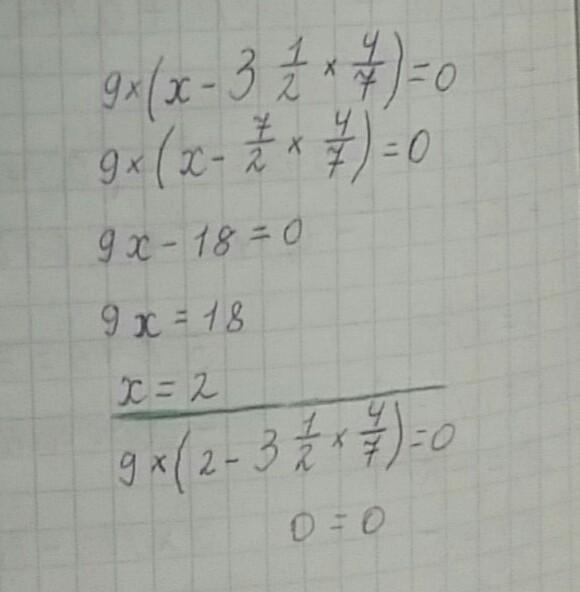 9×(x - 3 1/2 × 4/7) = 0
9×(x - 7/2 × 4/7) = 0
9x - 18 = 0
9x = 18
x = 2
9×(2 - 3 1/2 × 4/7) = 0
0 = 0